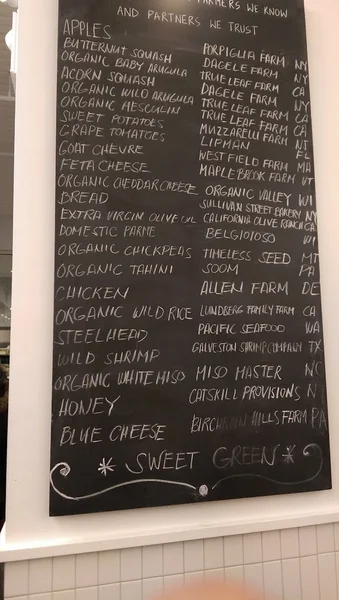 FARMERS WE KNOW
AND PARTNERS WE TRUST
APPLES PORPIGLIA FARM NY
BUTTERNUT SQUASH DAGELE FARM NY
ORGANIC BABY ARUGULA TRUE LEAF FARM CA
ACORN SQUASH DAGELE FARM NY
ORGANIC WILD ARUGULA TRUE LEAF FARM CA
ORGANIC MESCULIN TRUE LEAF FARM CA
SWEET POTATOES MUZZARELLI FARM NJ
GRAPE TOMATOES LIPMAN FL
GOAT CHEVRE WESTFIELD FARM MA
FETA CHEESE MAPLEBROOK FARM VT
ORGANIC CHEDDAR CHEESE ORGANIC VALLEY WI
BREAD SULLIVAN STREET BAKERY NY
EXTRA VIRGIN OLIVE OIL CALIFORNIA OLIVE RANCH CA
DOMESTIC PARME BELGIOIOSO WI
ORGANIC CHICKPEAS TIMELESS SEED MT
ORGANIC TAHINI SOOM PA
CHICKEN ALLEN FARM DE
ORGANIC WILD RICE LUNDBERG FAMILY FARM CA
STEELHEAD PACIFIC SEAFOOD WA
WILD SHRIMP GALVESTON SHRIMP COMPANY TX
ORGANIC WHITE MISO MISO MASTER NC
HONEY CATSKILL PROVISIONS N
BLUE CHEESE BIRCHRUN HILLS FARM PA
* SWEET GREEN *